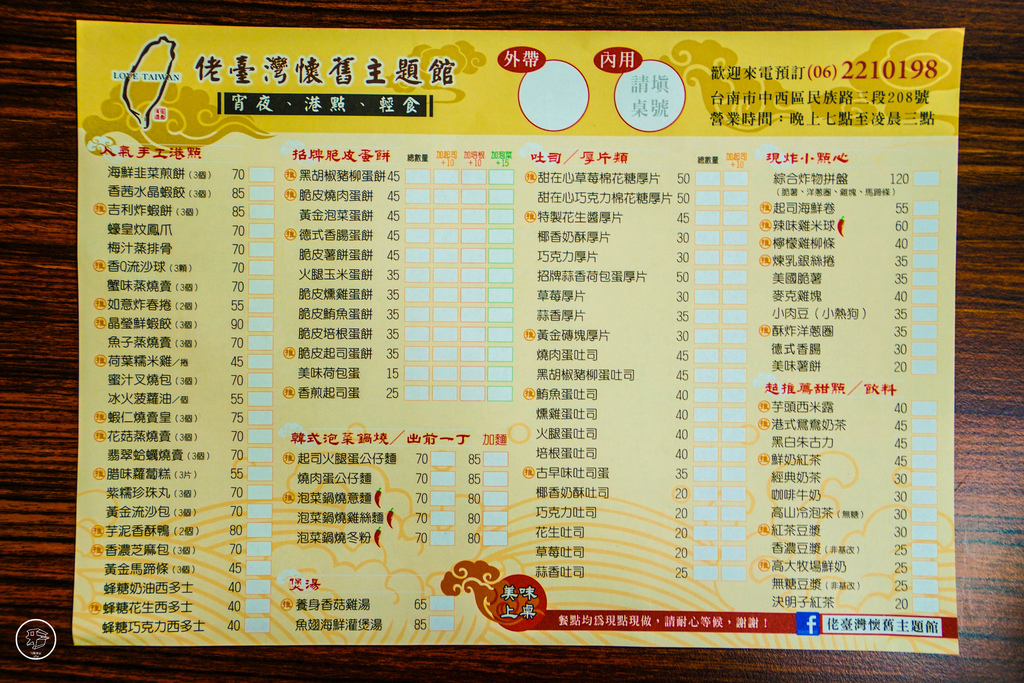 LOVE TAIWAN
佬臺灣懷舊主題館
宵夜、港點、輕食
外帶
內用
請塡
桌號
歡迎來電預訂(06)2210198
台南市中西區民族路三段208號
營業時間：晚上七點至凌晨三點
人氣手工港點
海鮮韭菜煎餅(3個) 70
香茜水晶蝦餃(3個) 85
推 吉利炸蝦餅(3個) 85
蠔皇炆鳳爪 70
梅汁蒸排骨 70
推 香Q流沙球(3顆) 70
蟹味蒸燒賣(3個) 70
推 如意炸春捲(2個) 55
推 晶瑩鮮蝦餃(3個) 90
魚子蒸燒賣(3個) 70
推 荷葉糯米雞/捲 45
蜜汁叉燒包(3個) 70
冰火菠蘿油/個 55
推 蝦仁燒賣皇(3個) 75
推 花菇蒸燒賣(3個) 70
翡翠蛤蠣燒賣(3個) 70
推 腊味蘿蔔糕(3片) 55
紫糯珍珠丸(3個) 70
黃金流沙包(3個) 70
推 芋泥香酥鴨(2個) 80
推 香濃芝麻包(3個) 70
黃金馬蹄條(3個) 45
蜂糖奶油西多士 40
推 蜂糖花生西多士 40
蜂糖巧克力西多士 40
招牌脆皮蛋餅 總數量 加起司+10 加培根+10 加泡菜+15
推 黑胡椒豬柳蛋餅 45
推 脆皮燒肉蛋餅 45
黃金泡菜蛋餅 45
推 德式香腸蛋餅 45
脆皮薯餅蛋餅 45
火腿玉米蛋餅 35
脆皮燻雞蛋餅 35
脆皮鮪魚蛋餅 35
脆皮培根蛋餅 35
推 脆皮起司蛋餅 35
美味荷包蛋 15
推 香煎起司蛋 25
韓式泡菜鍋燒/出前一丁 加麵
推 起司火腿蛋公仔麵 70 85
燒肉蛋公仔麵 70 85
推 泡菜鍋燒意麵 70 80
泡菜鍋燒雞絲麵 70 80
泡菜鍋燒冬粉 70 80
煲湯
推 養身香菇雞湯 65
魚翅海鮮灌煲湯 85
吐司/厚片類 總數量 加起司+10
推 甜在心草莓棉花糖厚片 50
甜在心巧克力棉花糖厚片 50
推 特製花生醬厚片 45
椰香奶酥厚片 30
巧克力厚片 30
招牌蒜香荷包蛋厚片 50
草莓厚片 30
蒜香厚片 35
推 黃金磚塊厚片 30
燒肉蛋吐司 45
黑胡椒豬柳蛋吐司 45
推 鮪魚蛋吐司 40
燻雞蛋吐司 40
火腿蛋吐司 40
培根蛋吐司 40
推 古早味吐司蛋 35
椰香奶酥吐司 20
巧克力吐司 20
花生吐司 20
草莓吐司 20
蒜香吐司 25
現炸小點心
綜合炸物拼盤 120
(脆薯、洋蔥圈、雞塊、馬蹄條)
推 起司海鮮卷 55
推 辣味雞米球 60
推 檸檬雞柳條 40
推 煉乳銀絲捲 35
美國脆薯 35
麥克雞塊 40
小肉豆(小熱狗) 35
推 酥炸洋蔥圈 35
德式香腸 30
美味薯餅 20
超推薦甜點/飲料
推 芋頭西米露 40
推 港式鴛鴦奶茶 45
黑白朱古力 45
推 鮮奶紅茶 45
經典奶茶 30
咖啡牛奶 30
高山冷泡茶(無糖) 30
推 紅茶豆漿 30
香濃豆漿(非基改) 25
推 高大牧場鮮奶 25
無糖豆漿(非基改) 25
決明子紅茶 20
美味
上桌
餐點均為現點現做，請耐心等候，謝謝！
f 佬臺灣懷舊主題館